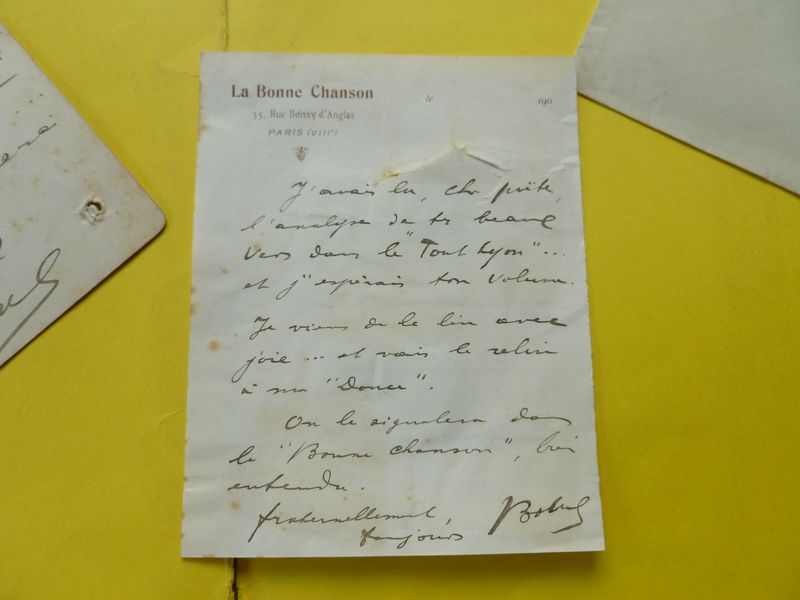 La Bonne Chanson
35, Rue Boissy d'Anglas
PARIS (VIIIe)
le 190
J'avais lu, cher poëte,
l'analyse de tes beaux
vers dans le "Tout Lyon"...
et j'espérais ton volume.
Je viens de le lire avec
joie... et vais le relire
à ma "Douce".
On le signalera dans
la "Bonne Chanson", bien
entendu.
fraternellement,
toujours
Botrel